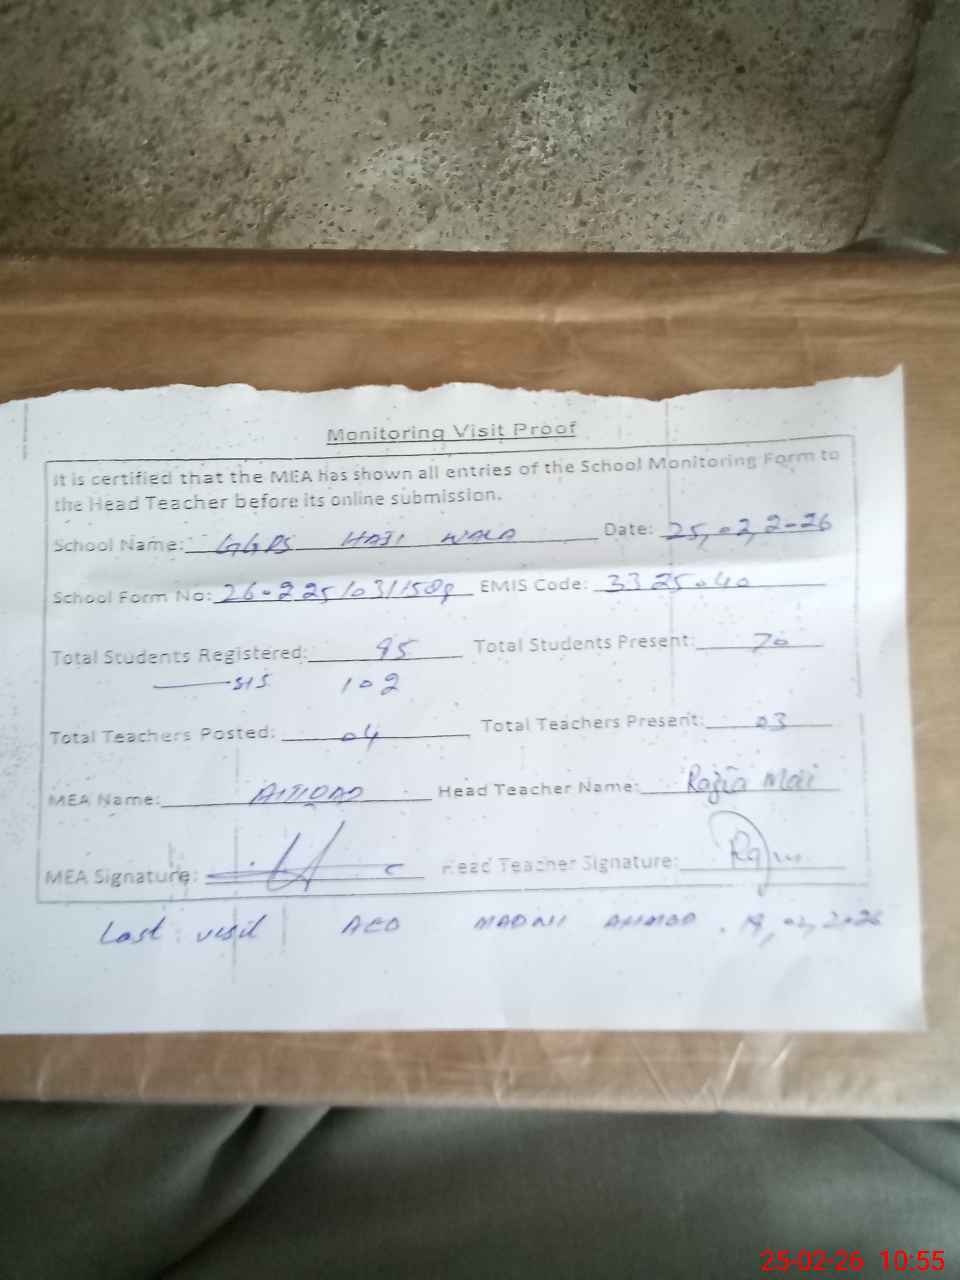 Monitoring Visit Proof
It is certified that the MEA has shown all entries of the School Monitoring Form to
the Head Teacher before its online submission.
School Name: GGPS HAJI WALA Date: 25,02,2026
School Form No: EMIS Code: 3325040
Total Students Registered: 95 Total Students Present: 70
SIS 102
Total Teachers Posted: 04 Total Teachers Present: 03
MEA Name: Head Teacher Name: Razia Mai
MEA Signature: Head Teacher Signature:
Last visit AEO MADNI AHMAD . 19,02,2026
25-02-26 10:55